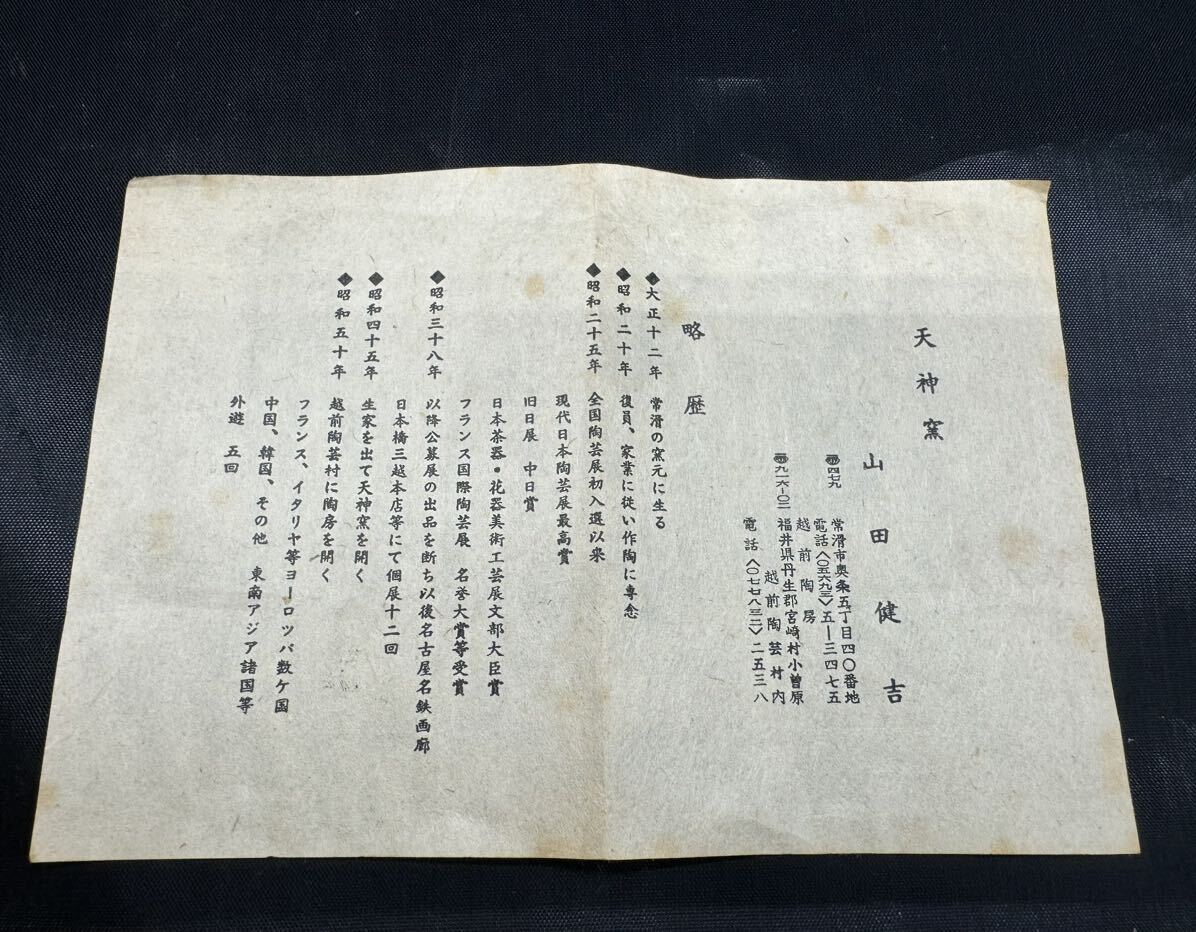 天神窯
山田健吉
〒四七九
常滑市奥条五丁目四〇番地
電話〈〇五六九三〉五ー三四七五
越前陶房
〒九一六ー〇二
福井県丹生郡宮崎村小曽原
越前陶芸村内
電話〈〇七七八三二〉二五三八
略歴
◆大正十二年 常滑の窯元に生る
◆昭和二十年 復員、家業に従い作陶に専念
◆昭和二十五年 全国陶芸展初入選以来
現代日本陶芸展最高賞
旧日展 中日賞
日本茶器・花器美術工芸展文部大臣賞
フランス国際陶芸展 名誉大賞等受賞
◆昭和三十八年 以降公募展の出品を断ち以後名古屋名鉄画廊
日本橋三越本店等にて個展十二回
◆昭和四十五年 生家を出て天神窯を開く
◆昭和五十年 越前陶芸村に陶房を開く
フランス、イタリヤ等ヨーロッパ数ケ国
中国、韓国、その他 東南アジア諸国等
外遊 五回